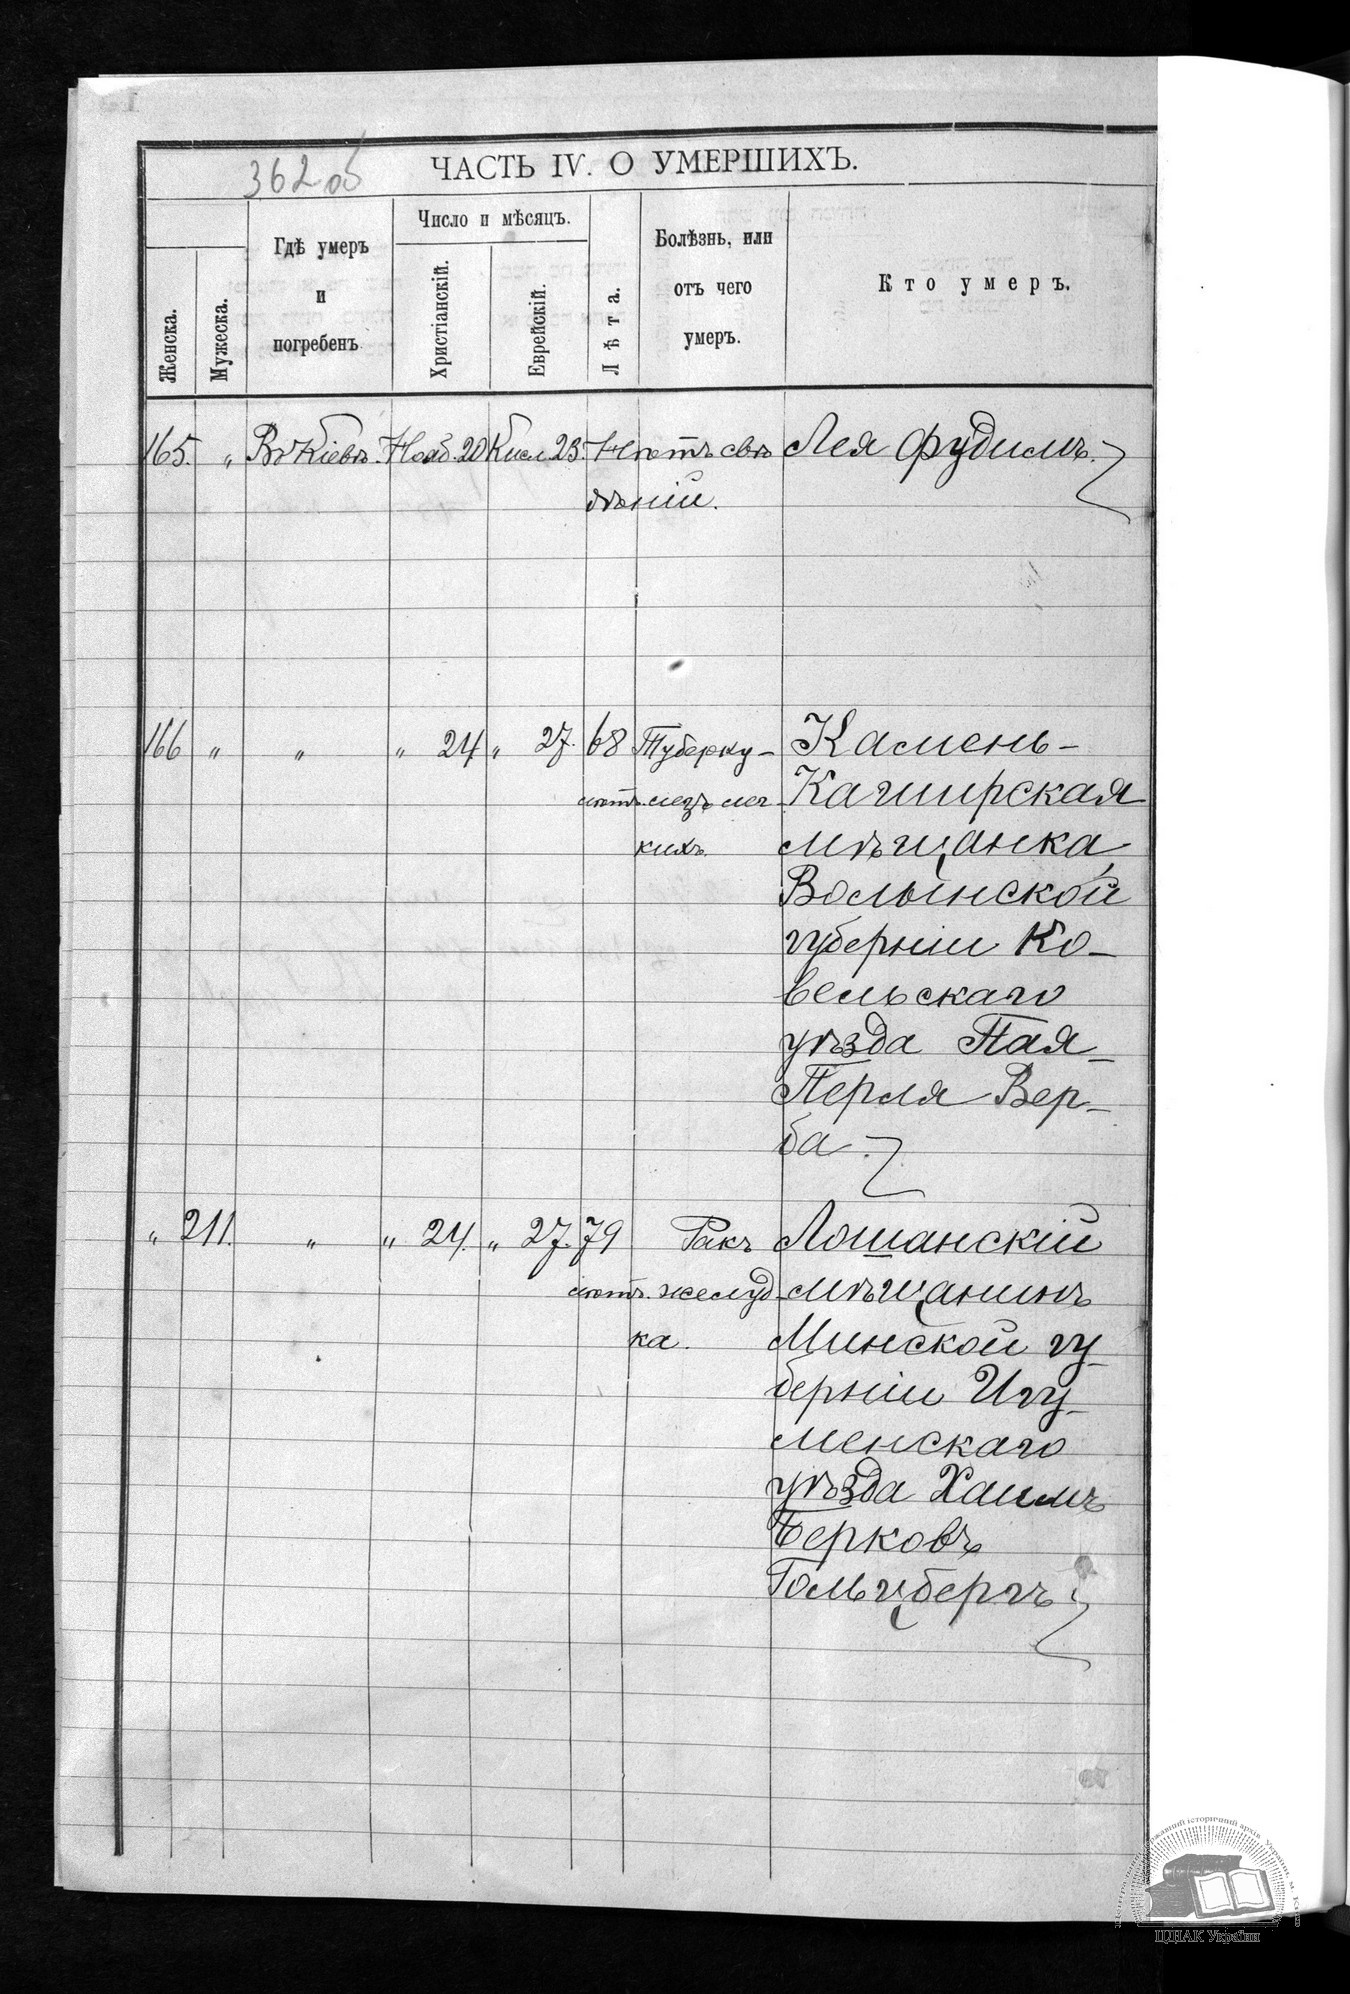 362об
ЧАСТЬ IV. О УМЕРШИХЪ.
Женска.
Мужеска.
Гдѣ умеръ
и
погребенъ
Число и мѣсяцъ.
Христіанскій.
Еврейскій.
Лѣта.
Болѣзнь, или
отъ чего
умеръ.
Кто умеръ.
165. „ Въ Кіевѣ. Нояб. 20 Кисл. 23. Нѣтъ свѣ Лея Фудимъ.
дѣній.
166 „ „ „ 24 „ 27. 68 Туберку- Камень-
лѣтъ. лезъ лег- Каширская
кихъ. мѣщанка
Волынской
губерніи Ко-
вельскаго
уѣзда Пая-
Перля Вер-
ба.
„ 211. „ „ 24. „ 27. 79 Ракъ Лошанскій
лѣтъ. желуд- мѣщанинъ
ка. Минской гу-
берніи Игу-
менскаго
уѣзда Хаимъ
Берковъ
Гольцбергъ
ЦДІАК України